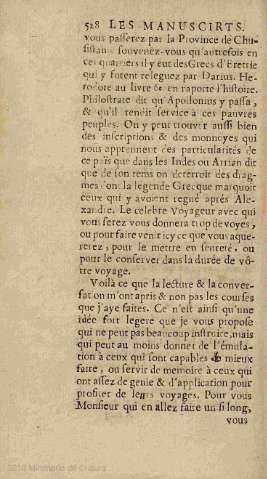 528 LES MANUSCIRTS.
vous passerez par la Province de Chu-
sistan, souvenez-vous qu'autrefois en
ces quartiers il y eut des Grecs d'Erettie
qui y furent releguez par Darius. He-
rodote au livre 6e en raporte l'histoire.
Philostrate dit qu'Apollonius y passa,
& qu'il rendit service à ces pauvres
peuples. On y peut trouver aussi bien
des inscriptions & des monnoyes qui
nous apprennent des particularités de
ce païs que dans les Indes ou Arrian dit
que de son tems on deterroit des drag-
mes dont la legende Grecque marquoit
ceux qui y avoient regné aprés Ale-
xandre. Le celebre Voyageur avec qui
vous serez vous donnera trop de voyes,
ou pour faire venir icy ce que vous aque-
rerez, pour le mettre en seureté, ou
pour le conserver dans la durée de vô-
tre voyage.
Voilà ce que la lecture & la conver-
sation m'ont apris & non pas les courses
que j'aye faites. Ce n'est ainsi qu'une
idée fort legere que je vous propose
qui ne peut pas beaucoup instruire, mais
qui peut au moins donner de l'émula-
tion à ceux qui sont capables de mieux
faire, ou servir de memoire à ceux qui
ont assez de genie & d'application pour
profiter de leurs voyages. Pour vous
Monsieur qui en allez faire un si long,
vous